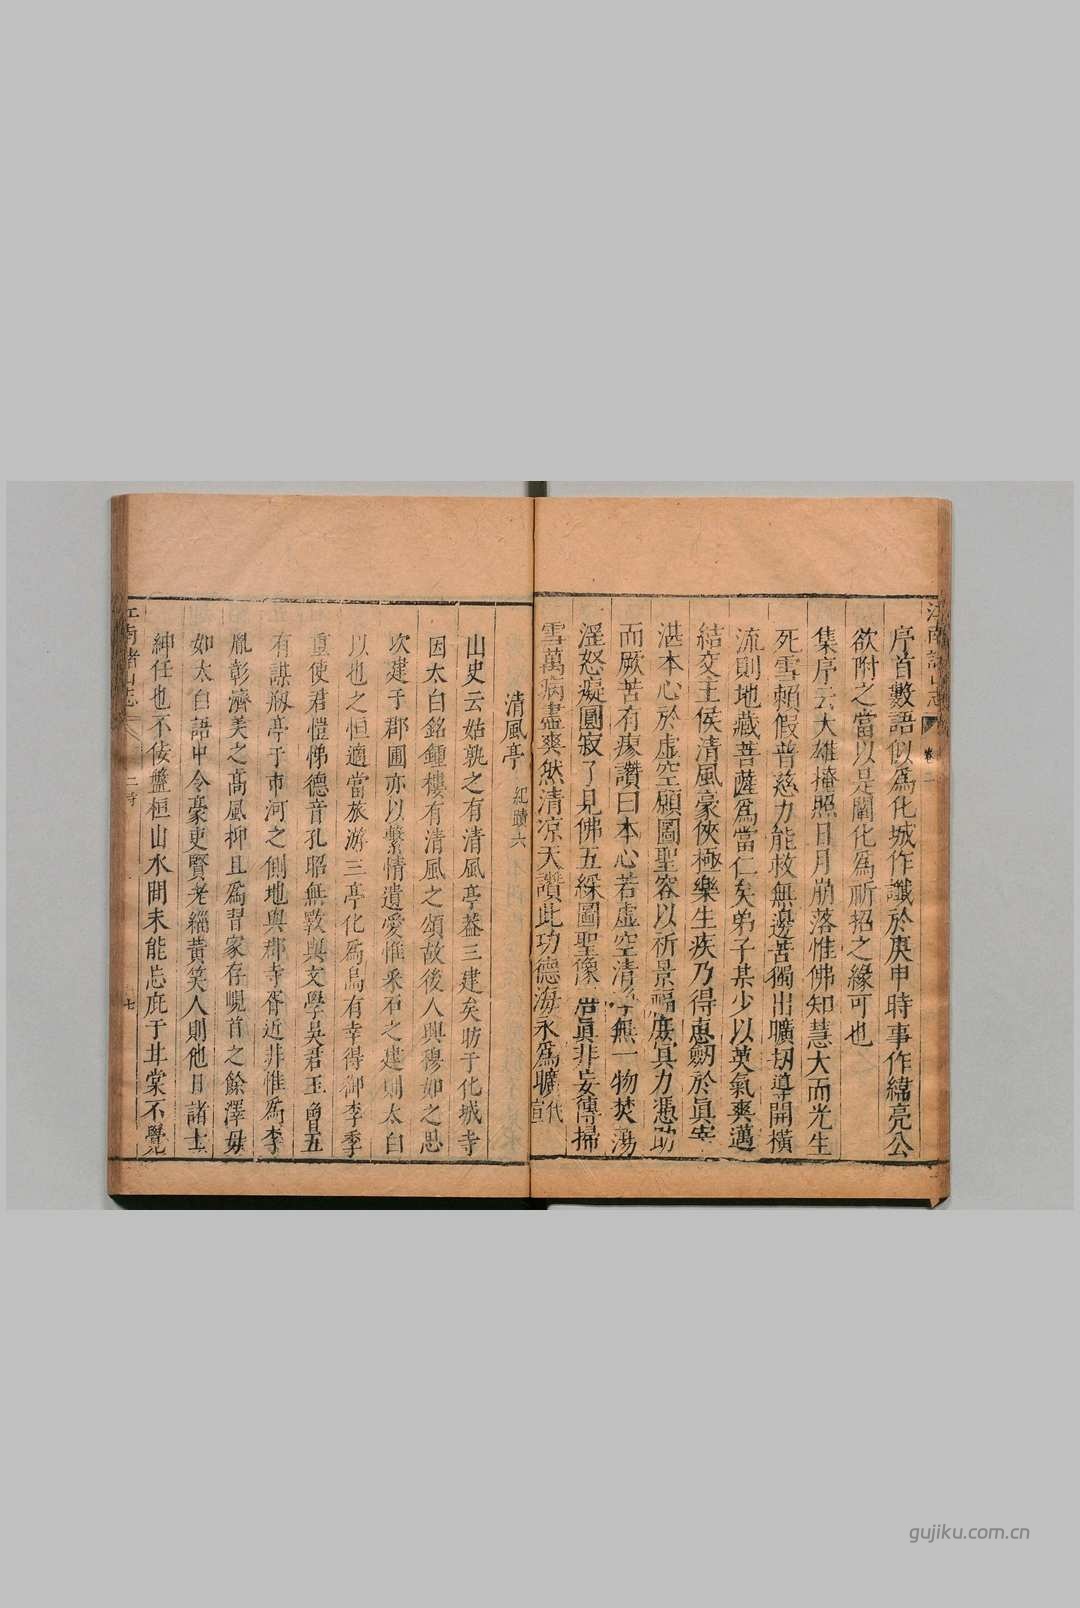 江南諸山志 卷二
序首數語似為化城作讖於庚申時事作緯亮公
欲附之當以是闡化為祈招之緣可也
集序云大雄掩照日月崩落惟佛知慧大而光生
死雪賴假普慈力能救無邊苦獨出曠刼導開橫
流則地藏菩薩為當仁矣弟子某少以英氣爽邁
結交王侯清風豪俠極樂生疾乃得惠劒於真宰
湛本心於虛空願圖聖容以祈景福庶其力憑助
而厥苦有瘳讚曰本心若虛空清淨無一物焚蕩
淫怒癡圓寂了見佛五綵圖聖像悟真非妄傳掃
雪萬病盡爽然清涼天讚此功德海永為曠代宣
清風亭 紀蹟六
山史云姑孰之有清風亭葢三建矣昉于化城寺
因太白銘鍾樓有清風之頌故後人興穆如之思
次建于郡圃亦以繫情遺愛惟釆石之建則太白
以也之恒適當旅游三亭化為烏有幸得御李季
重使君愷悌德音孔昭無斁與文學吳君玉
有謀剏亭于市河之側地與郡寺胥近非惟為李
胤彰濟美之高風抑且為習家存峴首之餘澤毋
如太白語中令豪吏賢老緇黃笑人則他日諸士
紳任也不佞盤桓山水間未能忘庇于甘棠不覺
江南諸山志
七
gujiku.com.cn